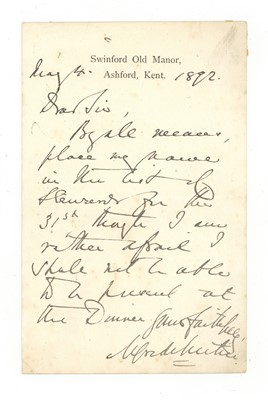 Swinford Old Manor,
Ashford, Kent.
May 4. 1892.
Dear Sir,
By all means,
place my name
in the list of
Stewards for the
31st though I am
rather afraid I
shall not be able
to be present at
the Dinner Yours faithfully